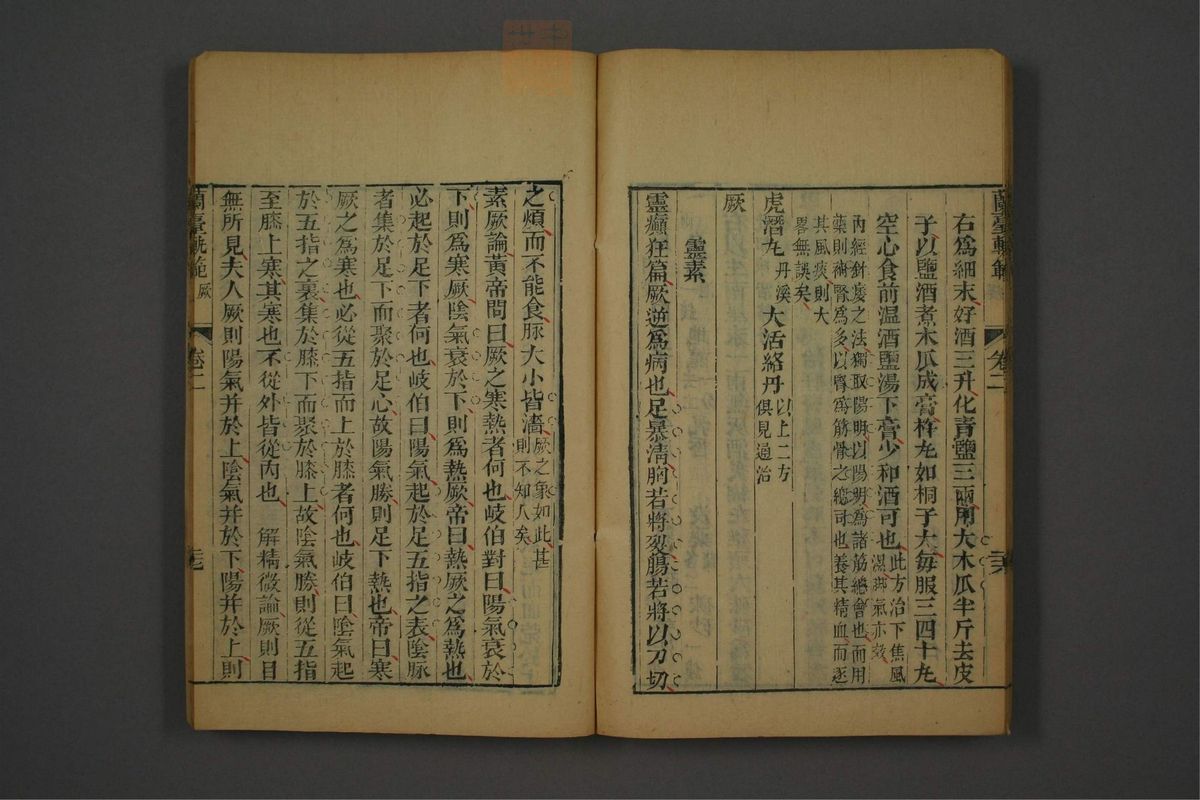 蘭臺軌範
卷二
右爲細末好酒三升化青鹽三兩大木瓜半斤去皮
子以鹽酒煮木瓜成膏杵丸如桐子大每服三四十丸
空心食前溫酒鹽湯下膏少和酒可也此方治下焦風
濕脚氣亦效
內經針痿之法獨取陽明以陽明爲諸筋總會也而用
藥則補腎爲多以腎爲筋骨之總司也養其精血而逐
其風痰則大
畧無誤矣
虎潛丸丹溪 大活絡丹以上二方
俱見通治
厥
靈素
靈癲狂篇厥逆爲病也足暴淸胸若將裂腸若將以刀切
之煩而不能食脉大小皆濇厥之象如此甚
則不知人矣
素厥論黃帝問曰厥之寒熱者何也岐伯對曰陽氣衰於
下則爲寒厥陰氣衰於下則爲熱厥帝曰熱厥之爲熱也
必起於足下者何也岐伯曰陽氣起於足五指之表陰脉
者集於足下而聚於足心故陽氣勝則足下熱也帝曰寒
厥之爲寒也必從五指而上於膝者何也岐伯曰陰氣起
於五指之裏集於膝下而聚於膝上故陰氣勝則從五指
至膝上寒其寒也不從外皆從內也 解精微論厥則目
無所見夫人厥則陽氣并於上陰氣并於下陽并於上則
蘭臺軌範 厥
卷二